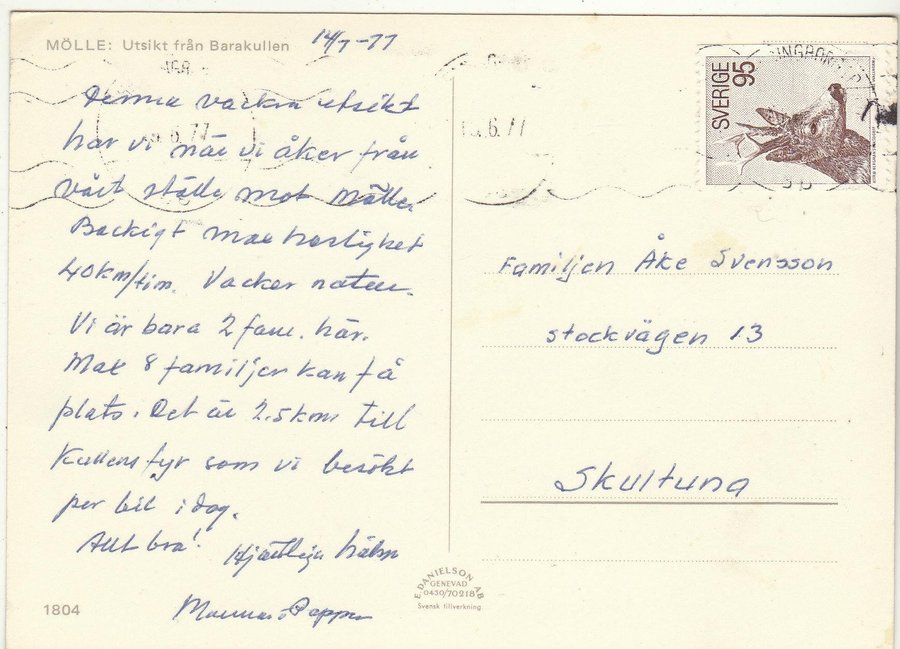 MÖLLE: Utsikt från Barakullen
14/7-77
Denna vackra utsikt
har vi när vi åker från
vårt ställe mot Mölle.
Backigt max hastighet
40km/tim. Vacker natur.
Vi är bara 2 fam. här.
Max 8 familjer kan få
plats. Det är 2.5km till
Kullens fyr som vi besökt
per bil i dag.
Allt bra! Hjärtliga hälsn
Mamma o Pappa
1804
E. DANIELSON AB
GENEVAD
0430/70218
Svensk tillverkning
SVERIGE
95
6.77
6.77
Familjen Åke Svensson
stockvägen 13
Skultuna